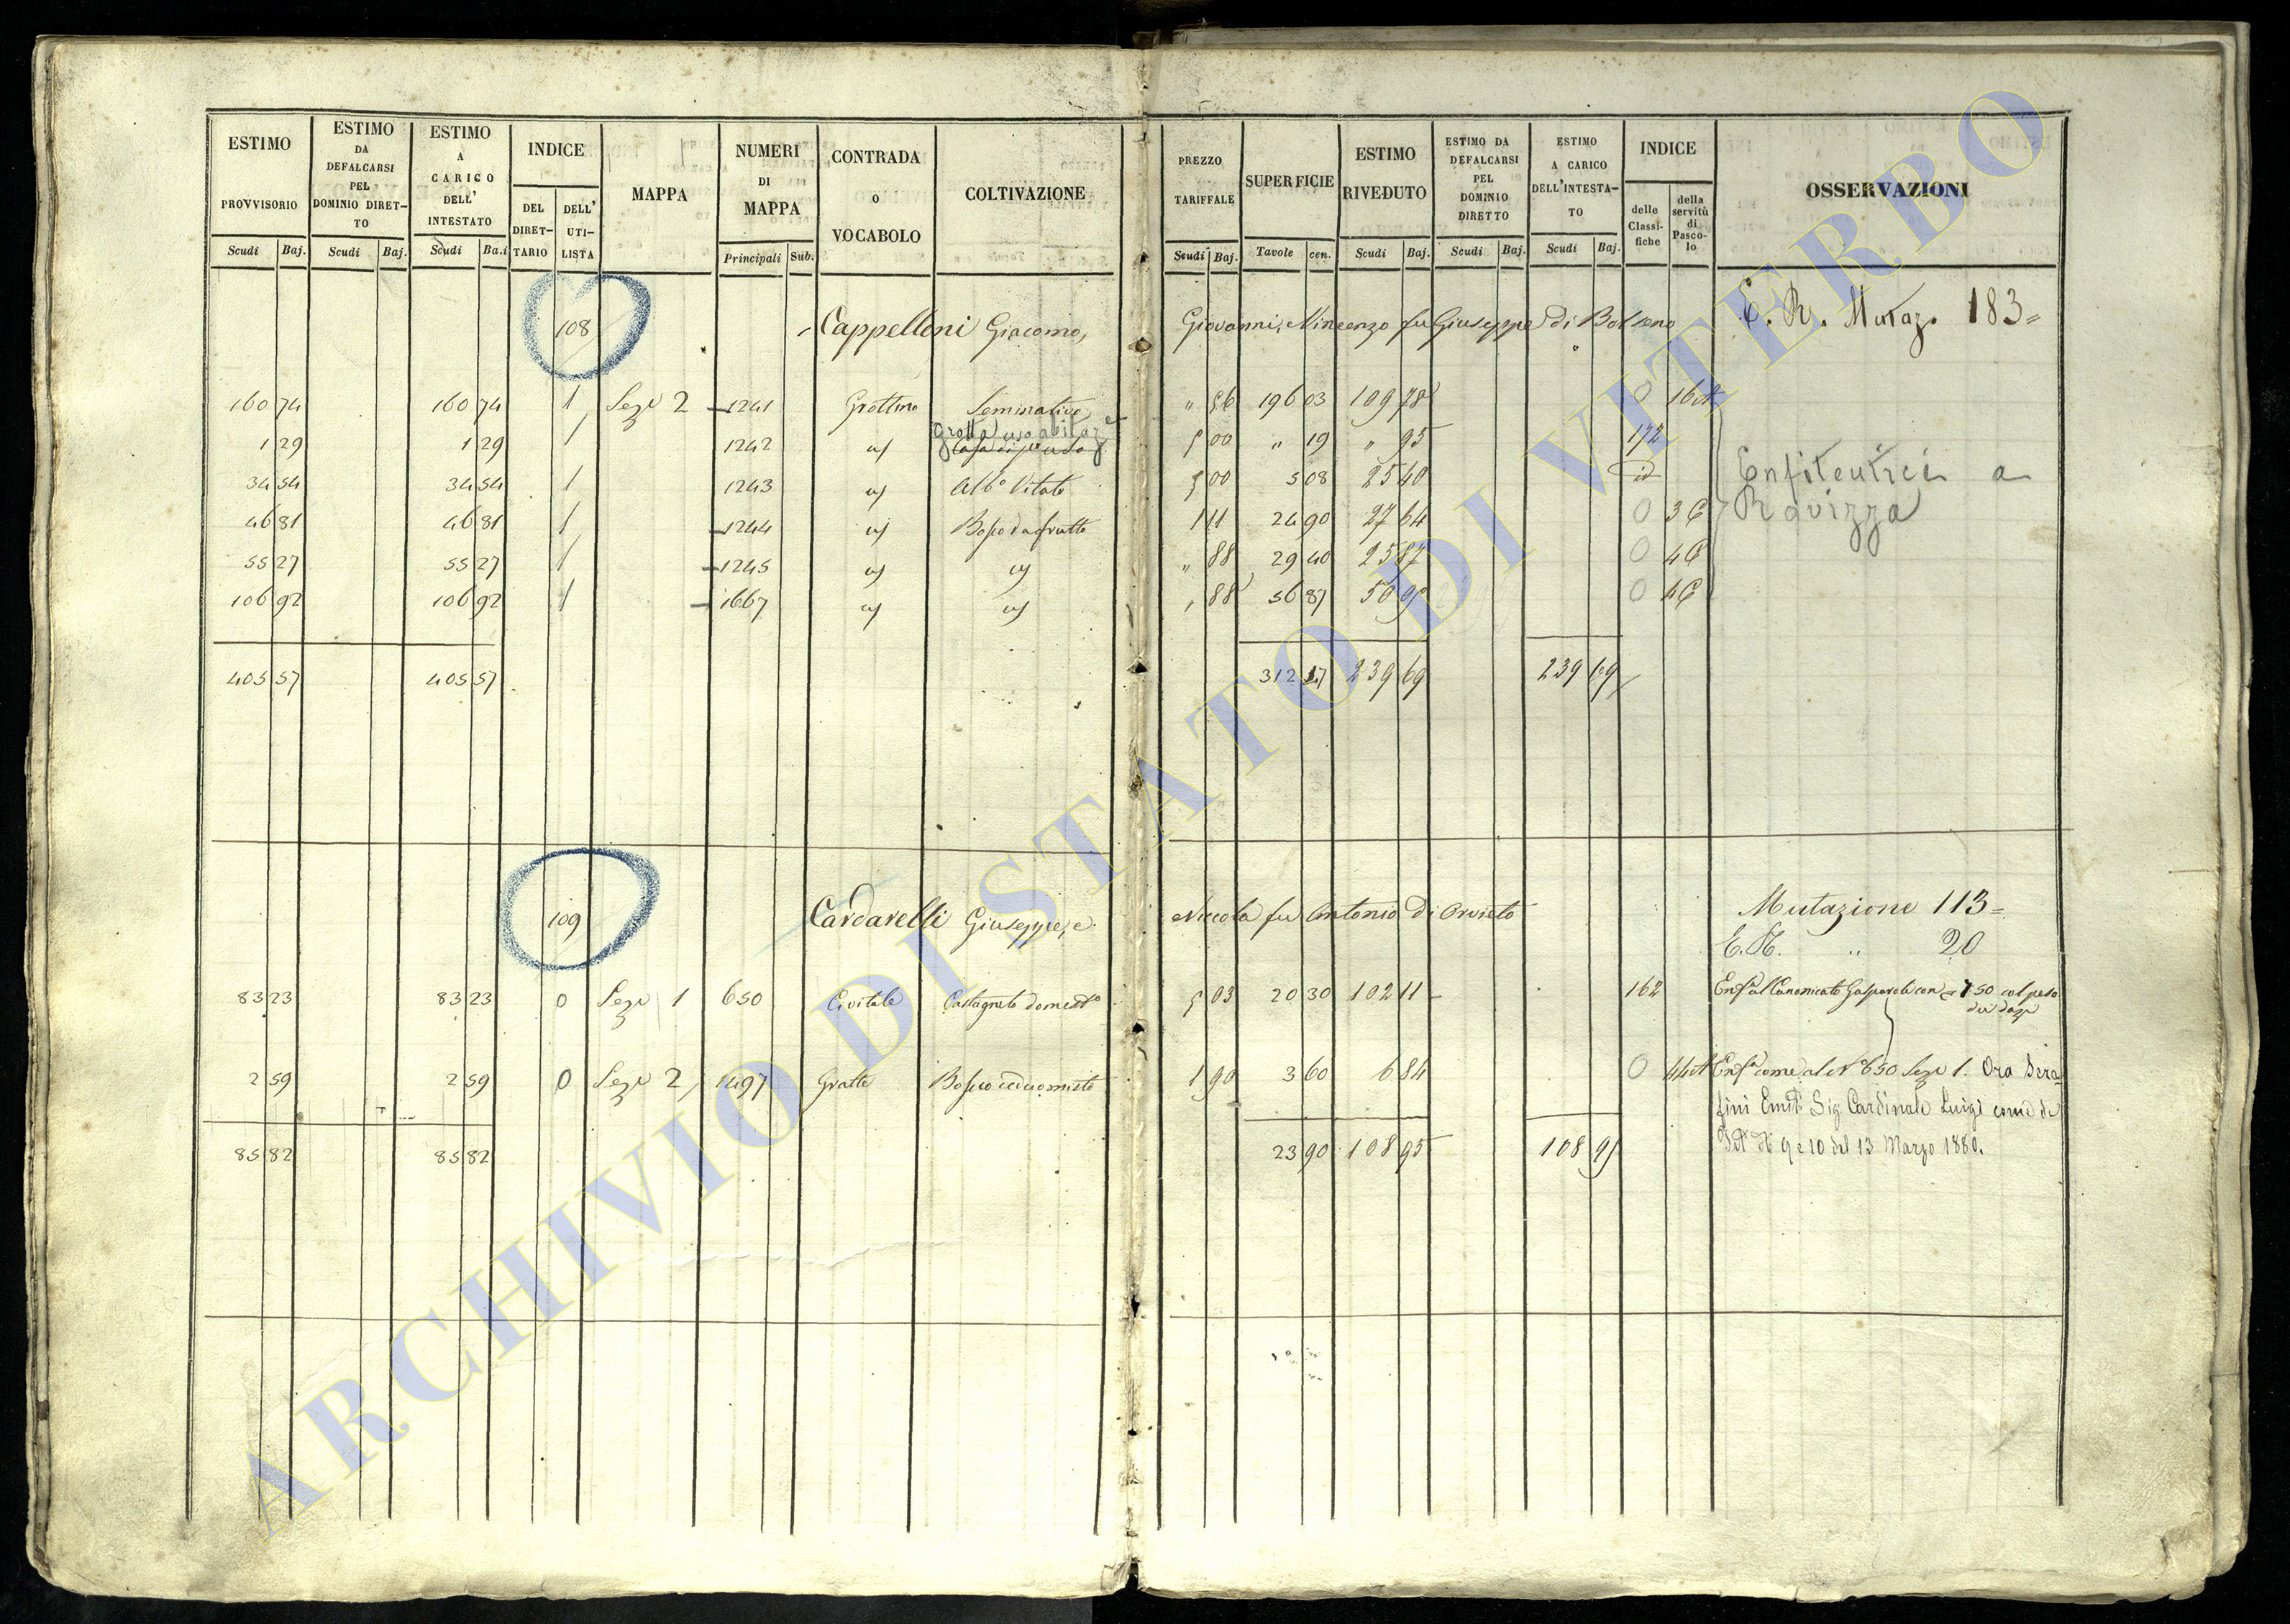 ESTIMO PROVVISORIO
Scudi Baj.
ESTIMO DA DEFALCARSI PEL DOMINIO DIRETTO
Scudi Baj.
ESTIMO A CARICO DELL' INTESTATO
Scudi Ba.i
INDICE
DEL DIRETTARIO
DELL' UTILISTA
MAPPA
NUMERI DI MAPPA
Principali Sub.
CONTRADA O VOCABOLO
COLTIVAZIONE
PREZZO TARIFFALE
Scudi Baj.
SUPERFICIE
Tavole cen.
ESTIMO RIVEDUTO
Scudi Baj.
ESTIMO DA DEFALCARSI PEL DOMINIO DIRETTO
Scudi Baj.
ESTIMO A CARICO DELL'INTESTATO
Scudi Baj.
INDICE
delle Classifiche
della servitù di Pascolo
OSSERVAZIONI
108 Cappelloni Giacomo, Giovanni, Vincenzo fu Giuseppe di Bolseno E. R. Mutaz. 183=
160 74 160 74 1 Sez. 2 1241 Grottino Seminativo " 56 196 03 109 78 0 16
1 29 1 29 1 1242 grotta uso abitaz. 5 00 " 19 " 95 172
34 54 34 54 1 1243 Alb.o Vitato 5 00 5 08 25 40 id
46 81 46 81 1 1244 Bosco da frutto 1 11 24 90 27 64 0 3
55 27 55 27 1 1245 " 88 29 40 25 87 0 4
106 92 106 92 1 1667 " 88 56 87 50 05 0 4
Enfiteutici a
Ravizza
405 57 405 57 312 47 239 69 239 69
109 Cardarelli Giuseppe, e Niccola fu Antonio di Orvieto Mutazione 113=
E. R. " 20
83 23 83 23 0 Sez. 1 650 Civitale Castagneto domest.o 5 03 20 30 102 11 162 Enf.a al Canonicato Gasparola con 1 50 col peso
dei dazi
2 59 2 59 0 Sez. 2 1497 Gratte Bosco ceduo misto 1 90 3 60 6 84 0 44 Enf.a come al N.o 650 Sez. 1. Ora Sera-
fini Em.o Sig. Cardinale Luigi come da
N. 9 e 10 del 13 Marzo 1880.
85 82 85 82 23 90 108 95 108 95
ARCHIVIO DI STATO DI VITERBO